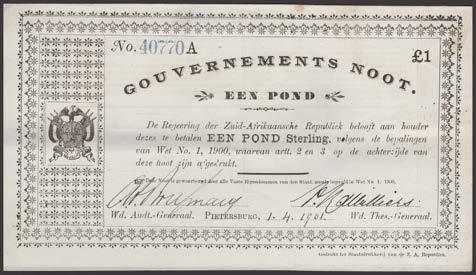 No. 40770 A
£1
GOUVERNEMENTS NOOT.
EEN POND
De Regeering der Zuid-Afrikaansche Republiek belooft aan houder
dezes te betalen EEN POND Sterling, volgens de bepalingen
van Wet No. 1, 1900, waarvan artt. 2 en 3 op de achterzijde van
deze noot zijn afgedrukt.
Deze Noot is gewaarborgd door alle Vaste Eigendommen van den Staat, zooals bepaald in Wet No. 1, 1900.
Wd. Audt.-Generaal. PIETERSBURG, 1-4.1901. Wd. Thes.-Generaal.
Gedrukt ter Staatsdrukkerij van de Z. A. Republiek.